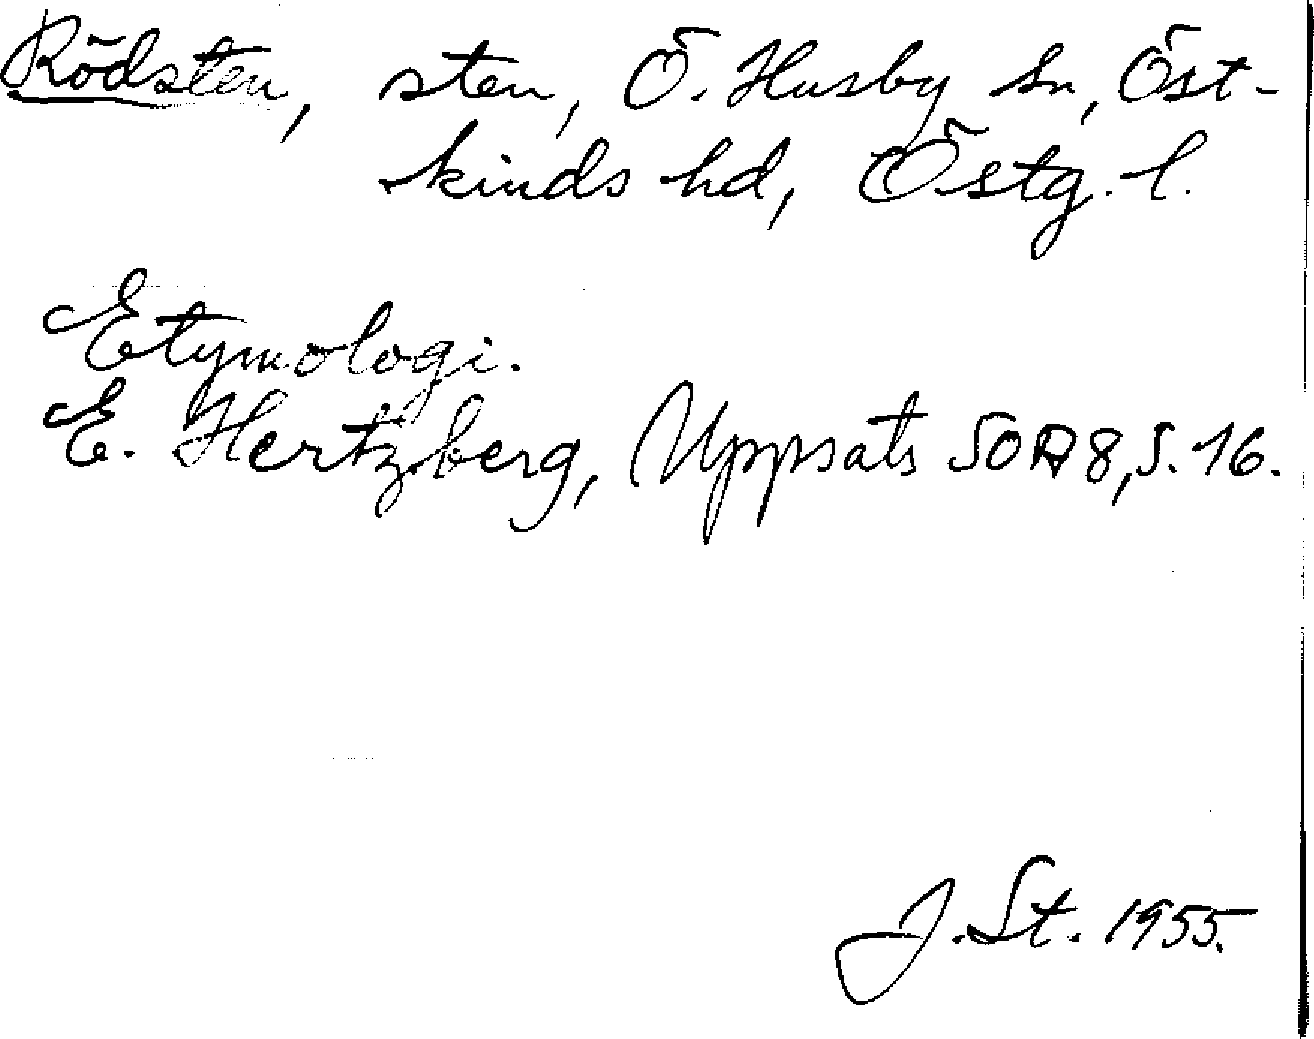 Rödsten, sten, Ö. Husby sn, Öst-
kinds hd, Östg. l.
Etymologi.
E. Hertzberg, Uppsats SOA 8, s. 16.
J. St. 1955.